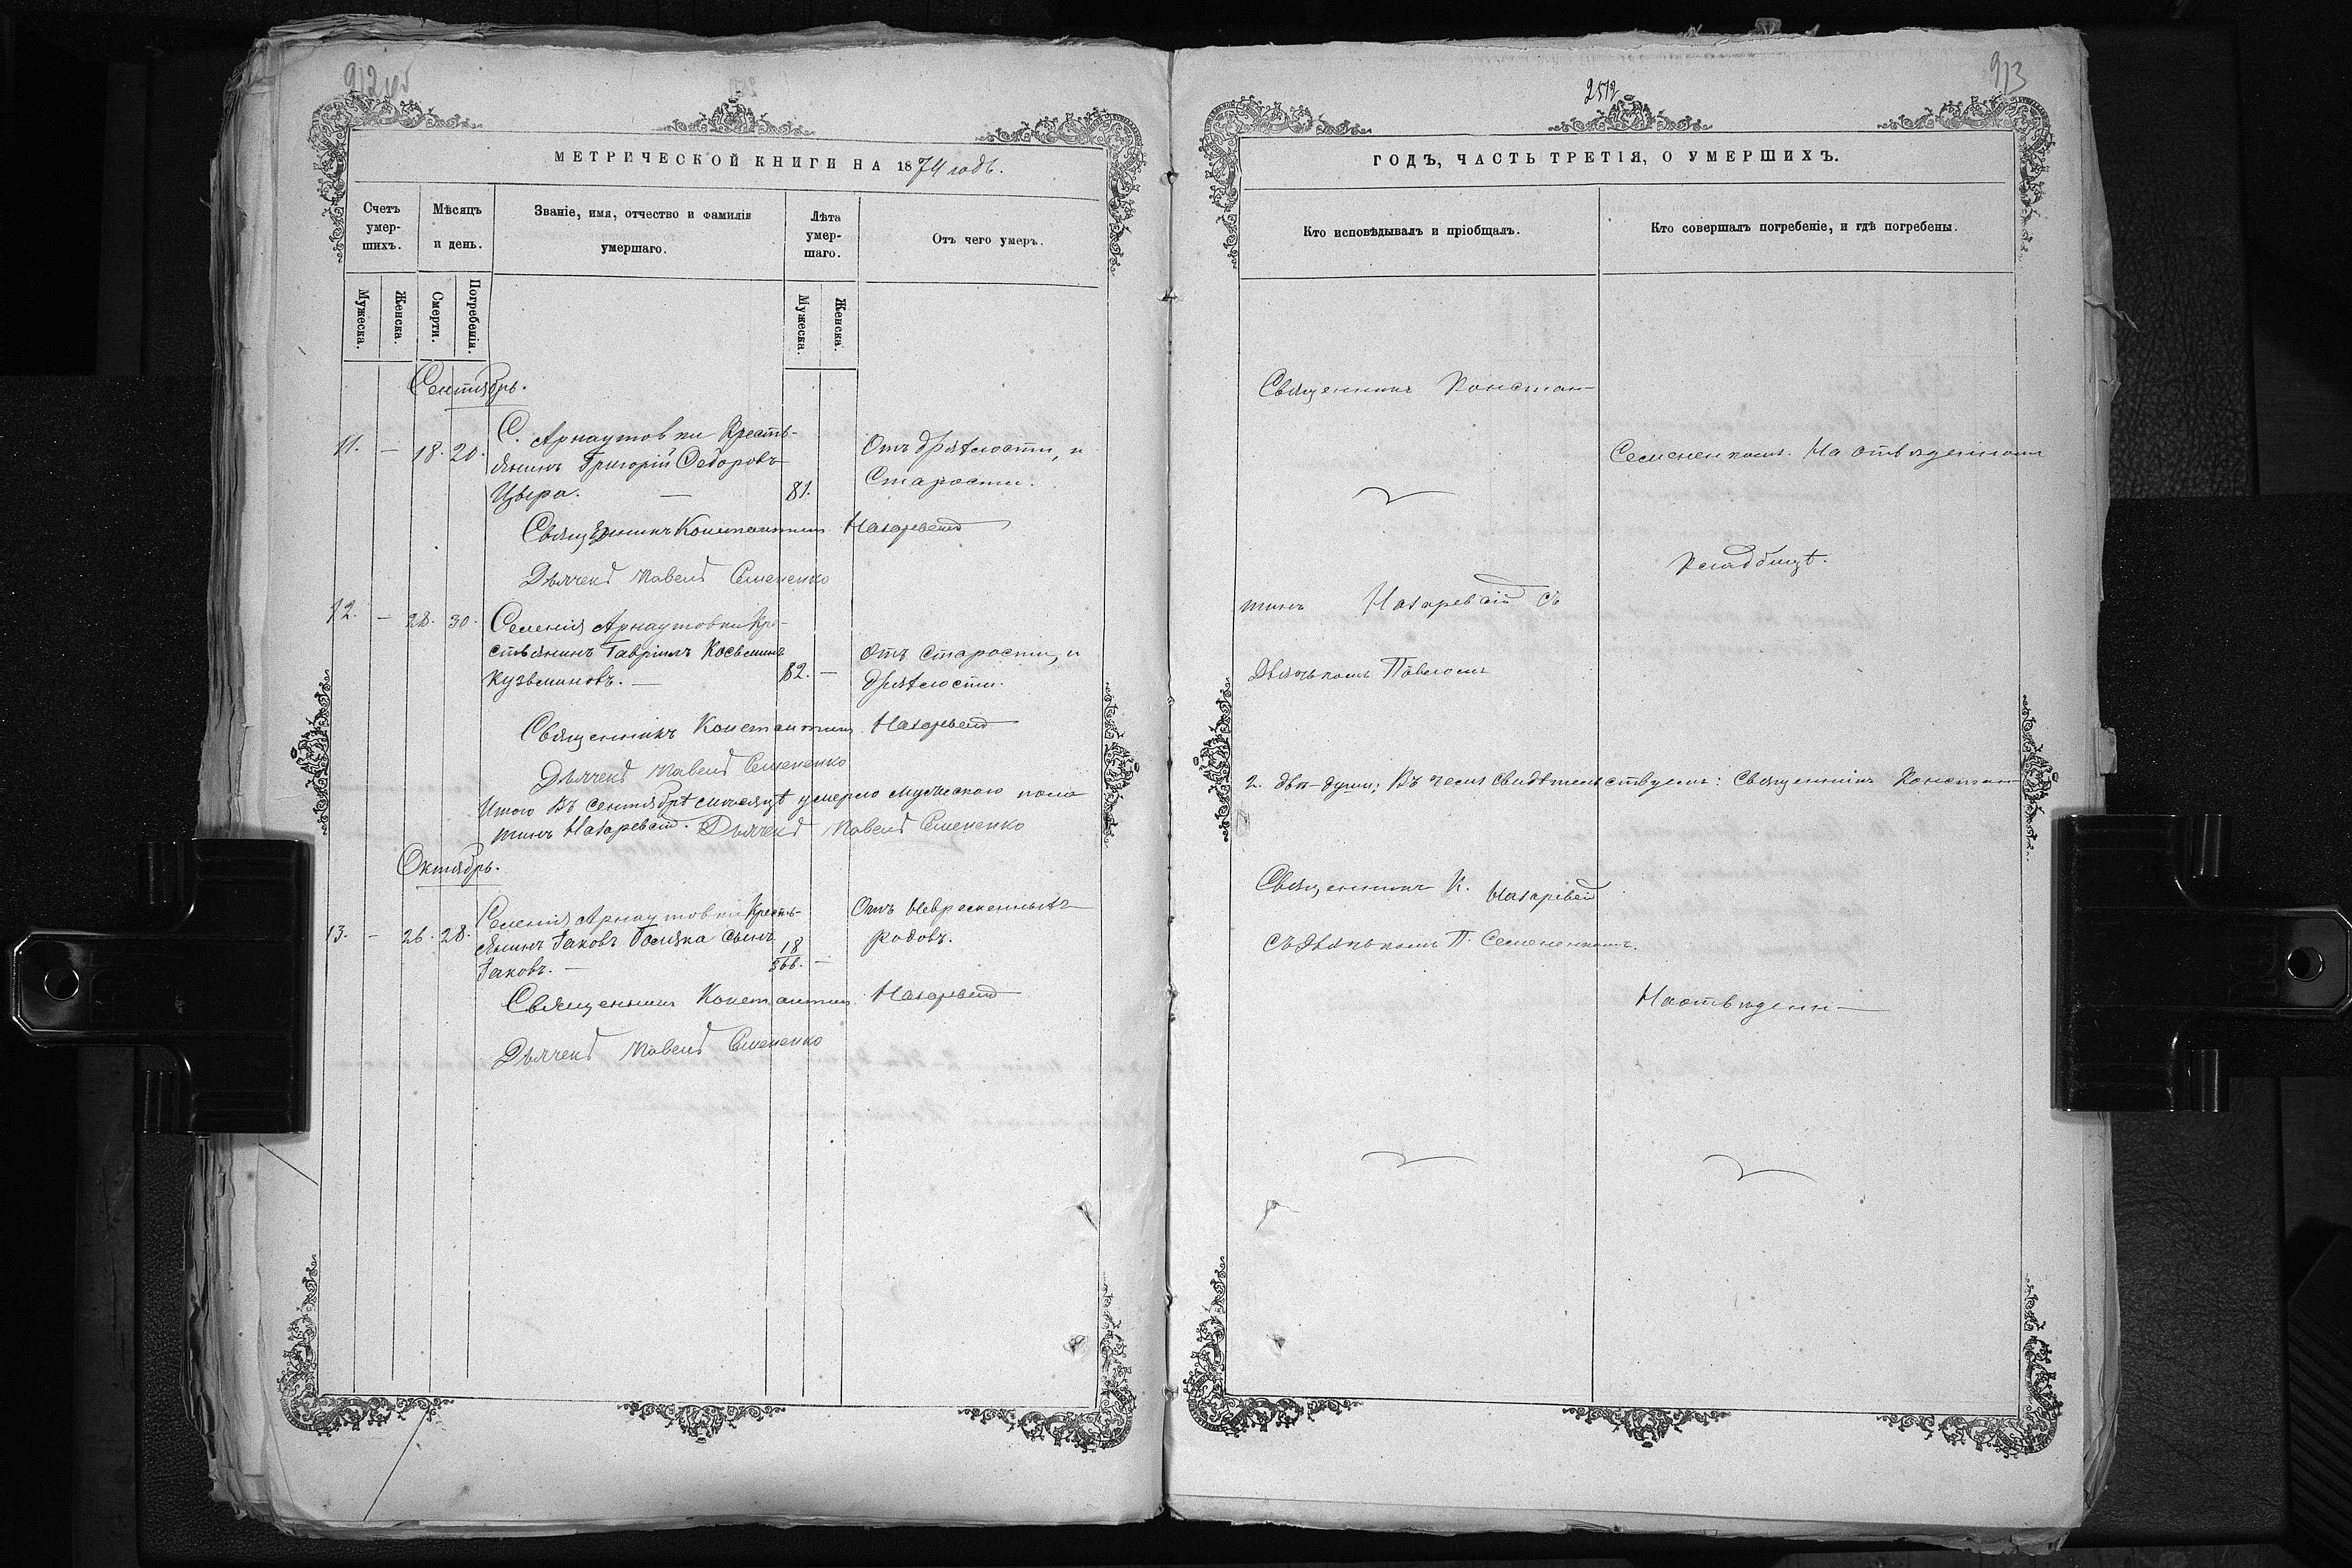 912 об
МЕТРИЧЕСКОЙ КНИГИ НА 1874 годъ.
Счетъ умер-
шихъ.
Мѣсяцъ
и день.
Званіе, имя, отчество и фамилія
умершаго.
Лѣта
умер-
шаго.
Отъ чего умеръ.
Мужеска.
Женска.
Смерти.
Погребенія.
Мужеска.
Женска.
Сентябрь.
11. — 18. 20.
С. Арнаутовки Кресть-
янинъ Григорій Ѳедоровъ
Цвѣра. — 81.
Отъ дряхлости, и
Старости.
Священникъ Константинъ Назаревскій
Дьячекъ Павелъ Семененко
12. — 28. 30.
Селенія Арнаутовки Кре-
стьянинъ Гавріилъ Косьминъ
Кузьминовъ. — 82. —
Отъ старости, и
дряхлости.
Священникъ Константинъ Назаревскій
Дьячекъ Павелъ Семененко
Итого въ сентябрѣ мѣсяцѣ умерло мужескаго пола
тинъ Назаревскій. Дьячекъ Павелъ Семененко
Октябрь.
13. — 26. 28.
Селенія Арнаутовки Кресть-
янинъ Іаковъ Голяка сынъ
Іаковъ. —
18
Отъ Невременныхъ
родовъ.
Священникъ Константинъ Назаревскій
Дьячекъ Павелъ Семененко
2512
913
ГОДЪ, ЧАСТЬ ТРЕТІЯ, О УМЕРШИХЪ.
Кто исповѣдывалъ и пріобщалъ.
Кто совершалъ погребеніе, и гдѣ погребены.
Священникъ Констан-
Семененкомъ. На отведенномъ
Кладбищѣ.
тинъ Назаревскій съ
Дьячькомъ Павломъ
2. двѣ души; Въ чемъ свидѣтельствуемъ: Священникъ Констан
Священникъ К. Назаревскій
съ Дьячькомъ П. Семененкомъ.
На отведенн—